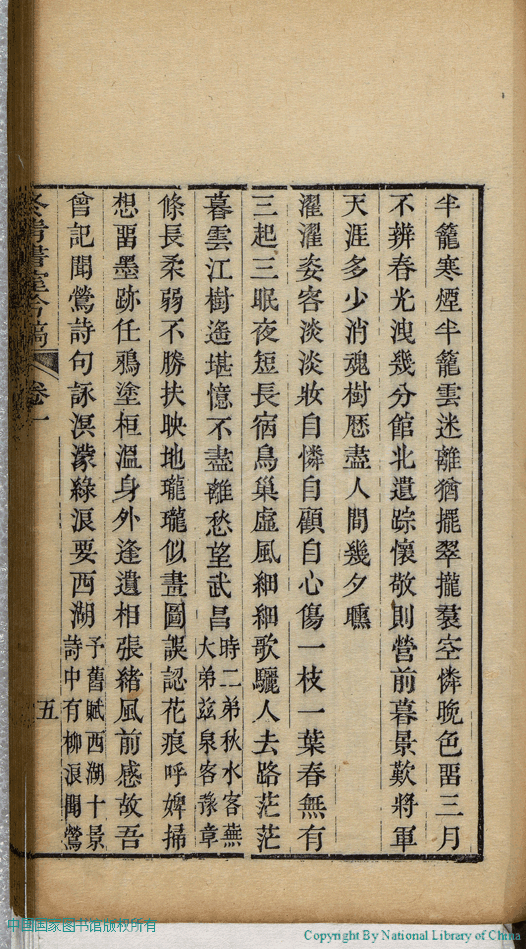 半籠寒煙半籠雲迷離猶擺翠攏羣空憐晚色畱三月
不辨春光洩幾分館北遺踪懷敬則營前暮景歎將軍
天涯多少消魂樹厯盡人間幾夕曛
濯濯姿容淡淡妝自憐自顧自心傷一枝一葉春無有
三起三眠夜短長宿鳥巢虛風細細歌驪人去路茫茫
暮雲江樹遙堪憶不盡離愁望武昌時二弟秋水客蕪
大弟茲泉客豫章
條長柔弱不勝扶映地瓏瓏似畫圖誤認花痕呼婢掃
想畱墨跡任鴉塗桓溫身外逢遺相張緒風前感故吾
曾記聞鶯詩句詠溟濛綠浪要西湖予舊賦西湖十景
詩中有柳浪聞鶯
書室吟稿
卷一
五
中国国家图书馆版权所有
Copyright By National Library of China